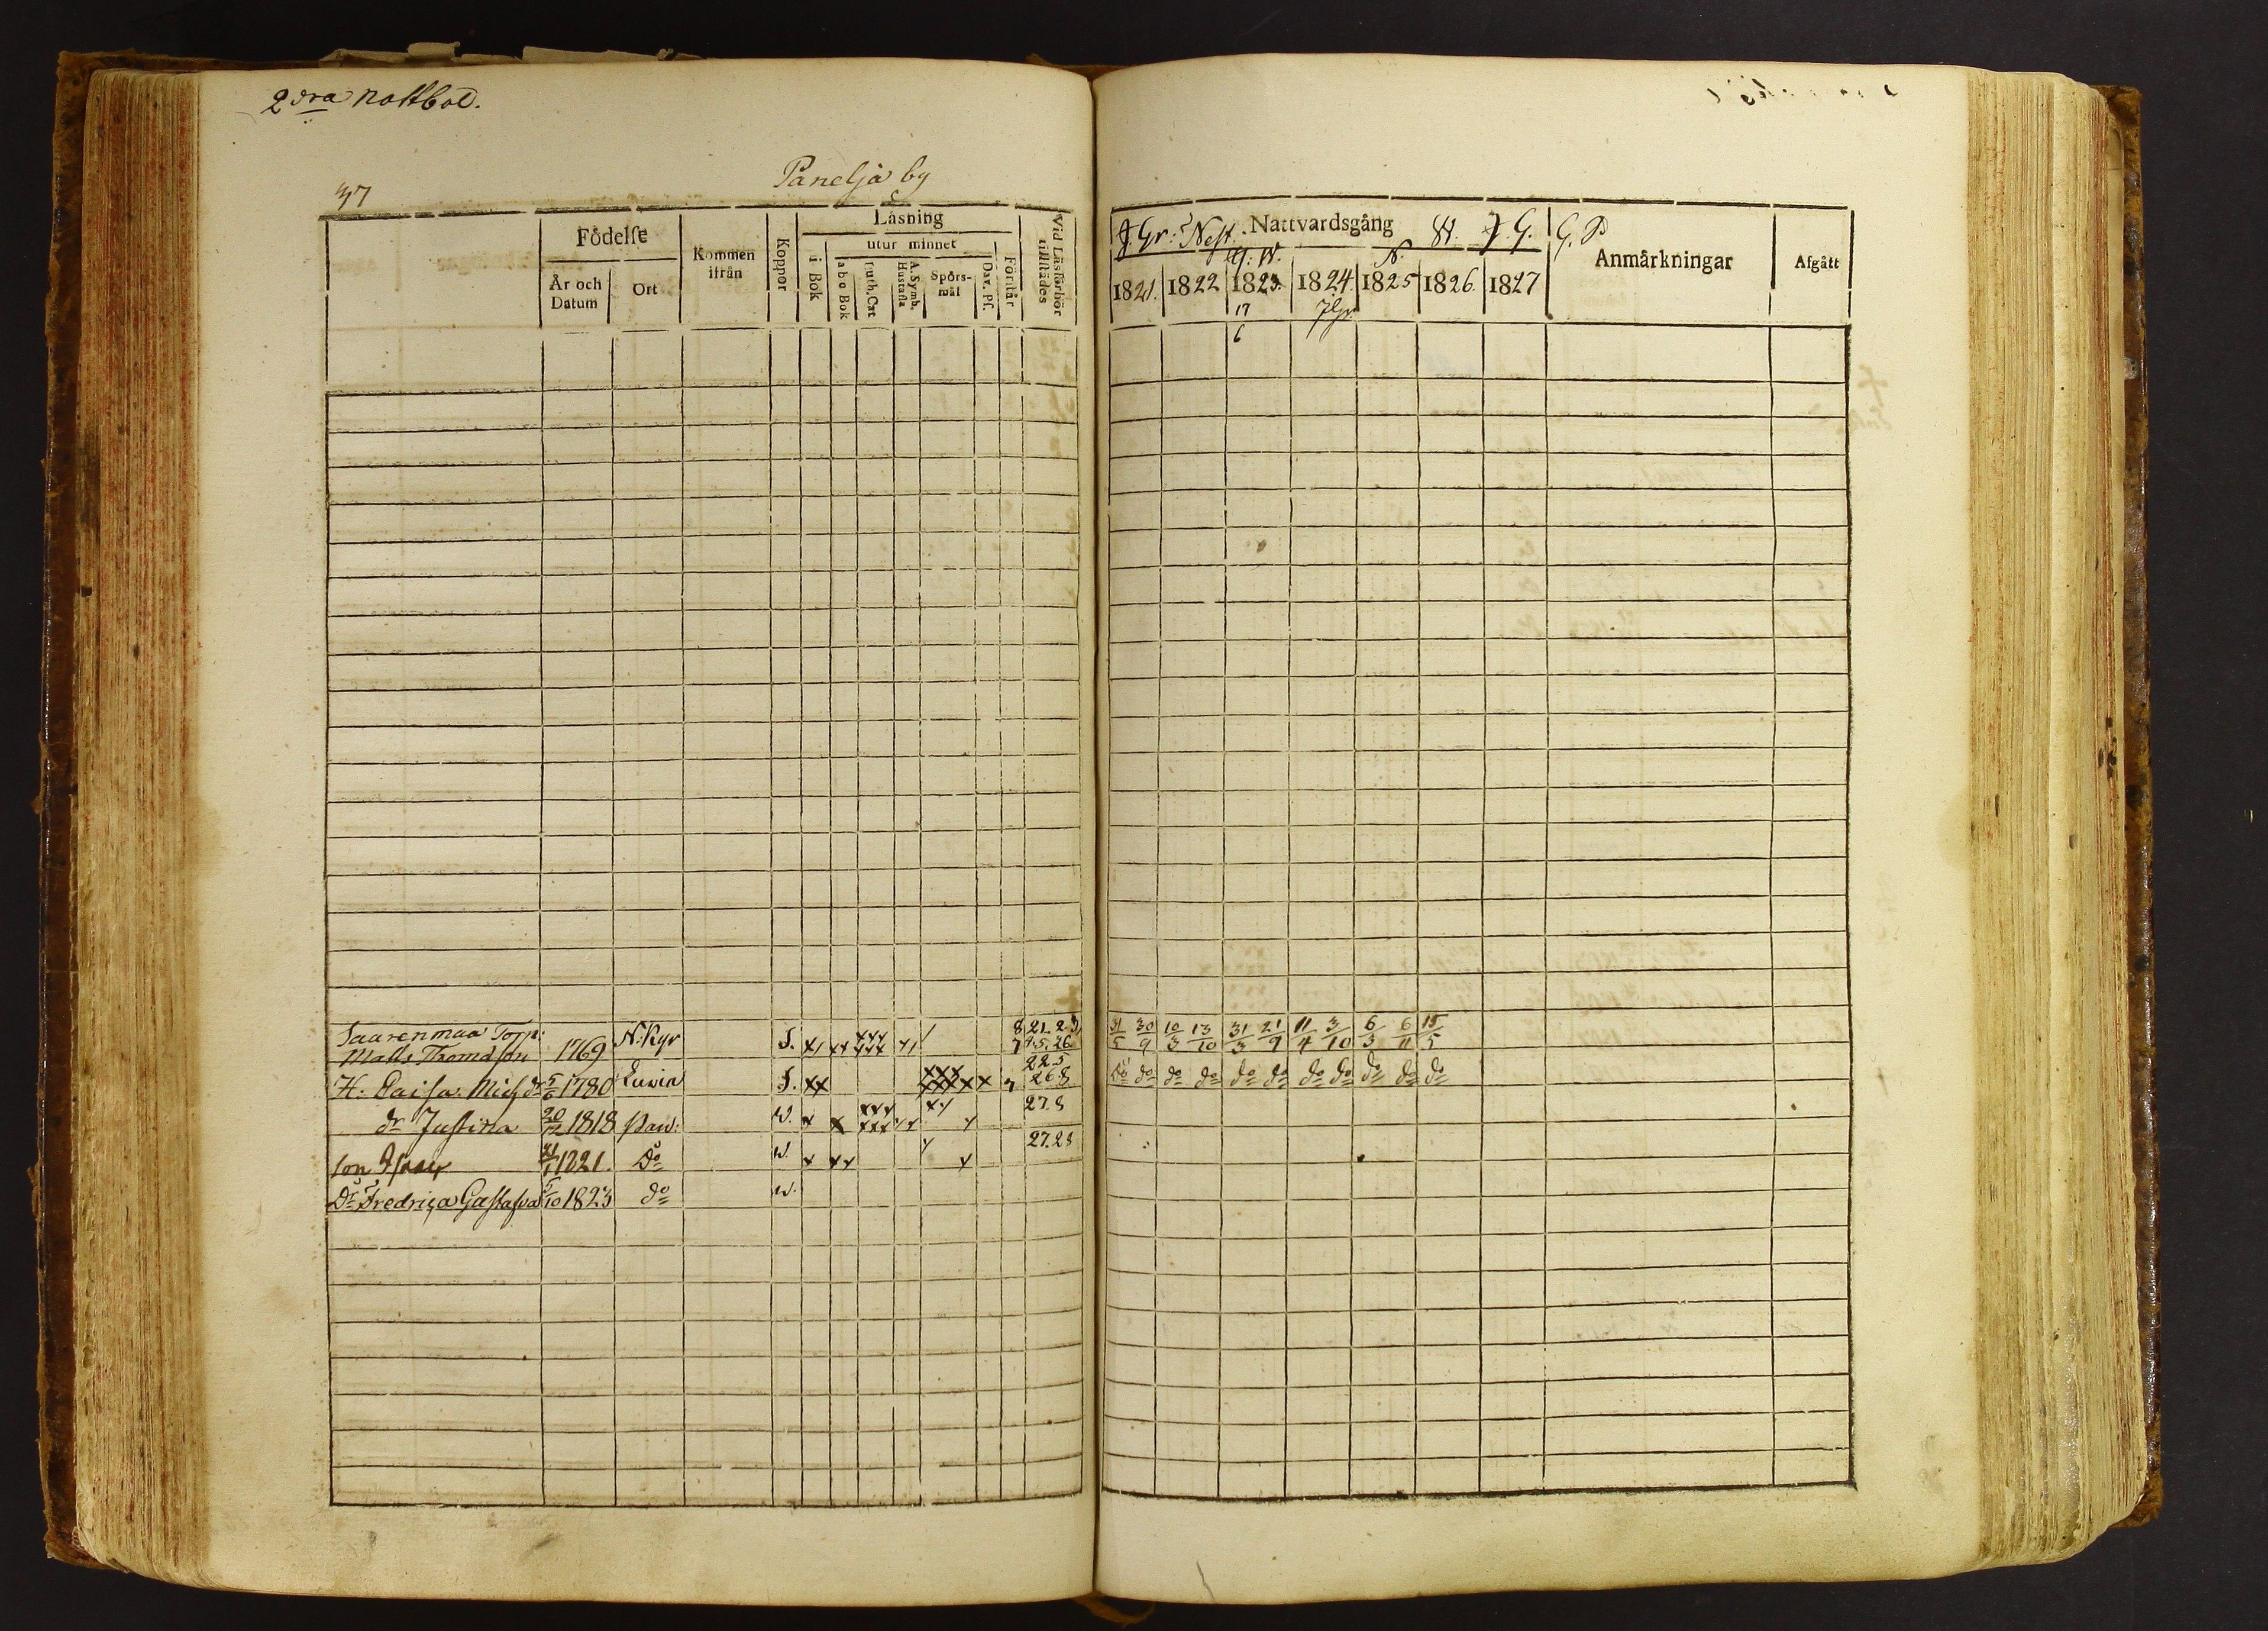 2dra nottbol.
Panelja by
37
Födelse
År och Datum
Ort
Kommen ifrån
Koppor
Läsning
i Bok
utur minnet
a b c Bok
Luth. Cat
A. Symb. Hustafla
Spörsmål
Dav. Ps.
Förstår
Vid Läsförhör tillstädes
Saarenmaa Torp:
Matts Thomasson 1769 N:Kyr S. 8 21. 23
7 25. 26
H. Caisa Mich dr 5/6 1780 Euwia S. xx xxx 7 22. 5
26. 8
dr Justina 20/12 1818 Pan: W. 27. 8
son Isaac 31/1 1821. Do W. 27. 28
Dr Fredrica Gustafva 5/10 1823 do W.
J. Gr: Nest. Nattvardsgång J. G. G. P
1821. 1822 1823. 1824. 1825 1826. 1827
Anmärkningar
Afgått
17
6
31/5 30/9 10/3 13/10 31/3 21/9 11/4 3/10 6/3 6/11 15/5
Do do do do do do do do do do do